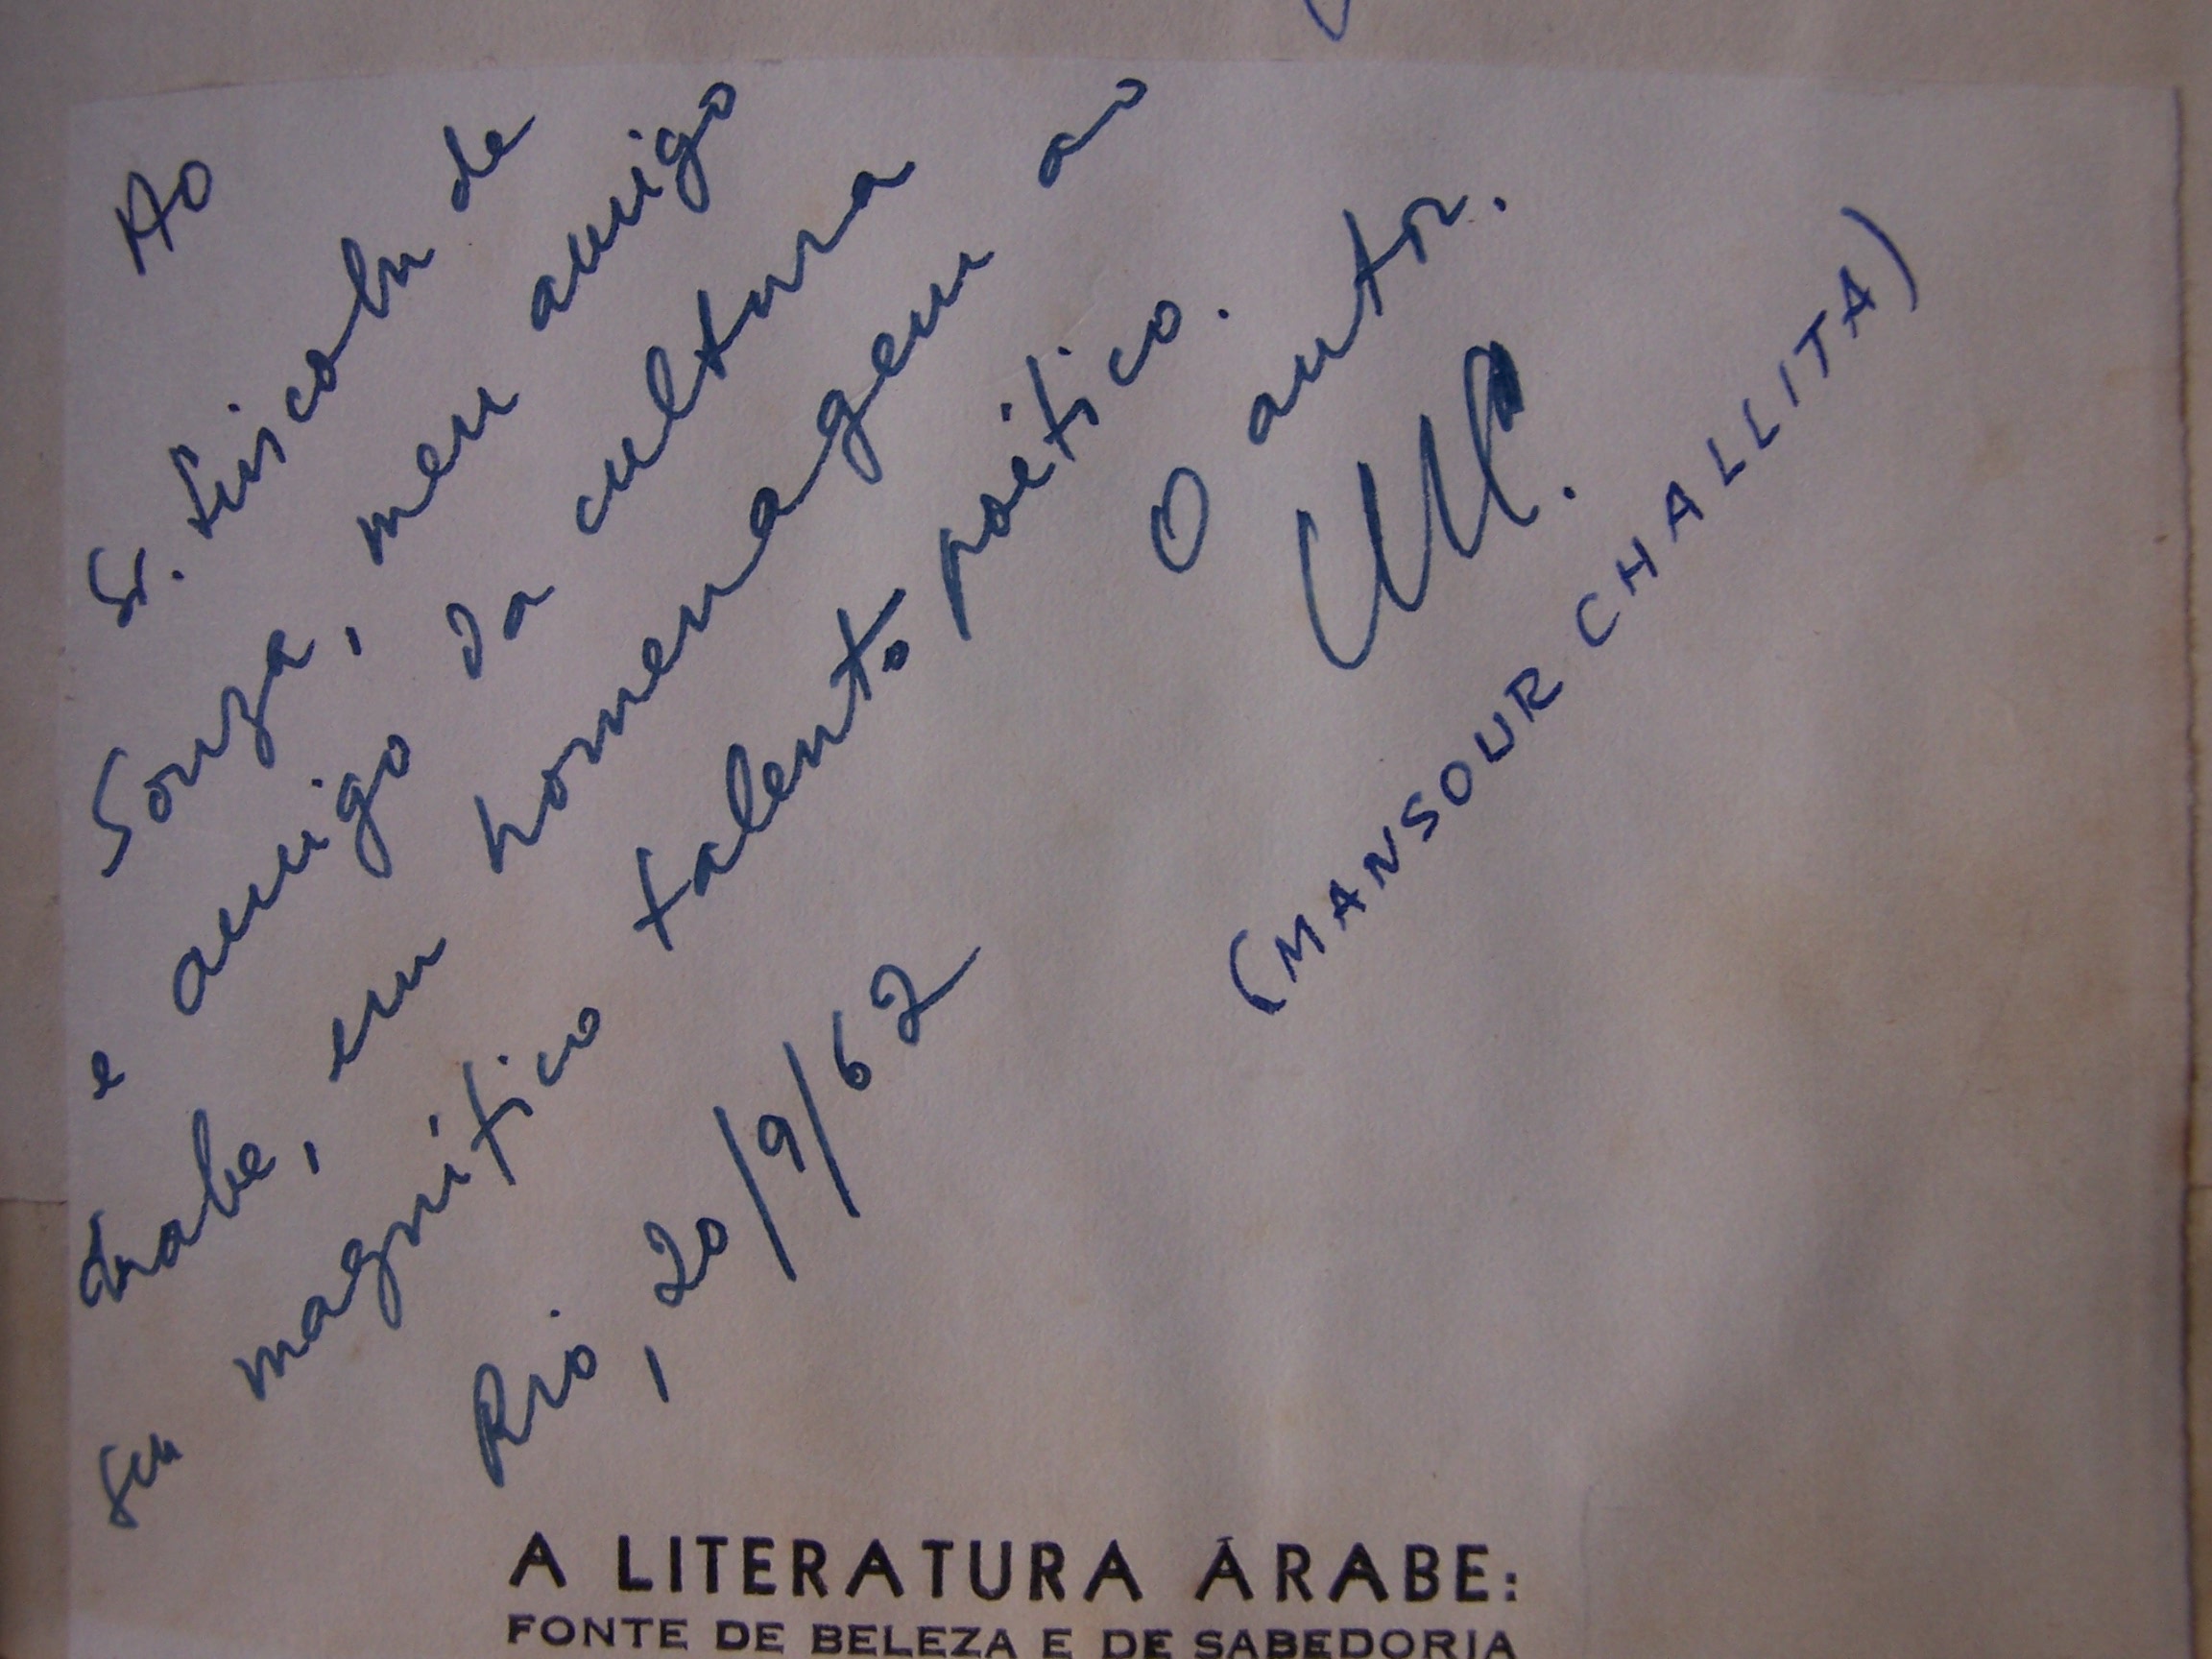 Ao
Sr. Lincoln de
Souza, meu amigo
e amigo da cultura
árabe, em homenagem ao
seu magnífico talento poético.
O autor.
Rio, 20/9/62
(MANSOUR CHALLITA)
A LITERATURA ÁRABE:
FONTE DE BELEZA E DE SABEDORIA